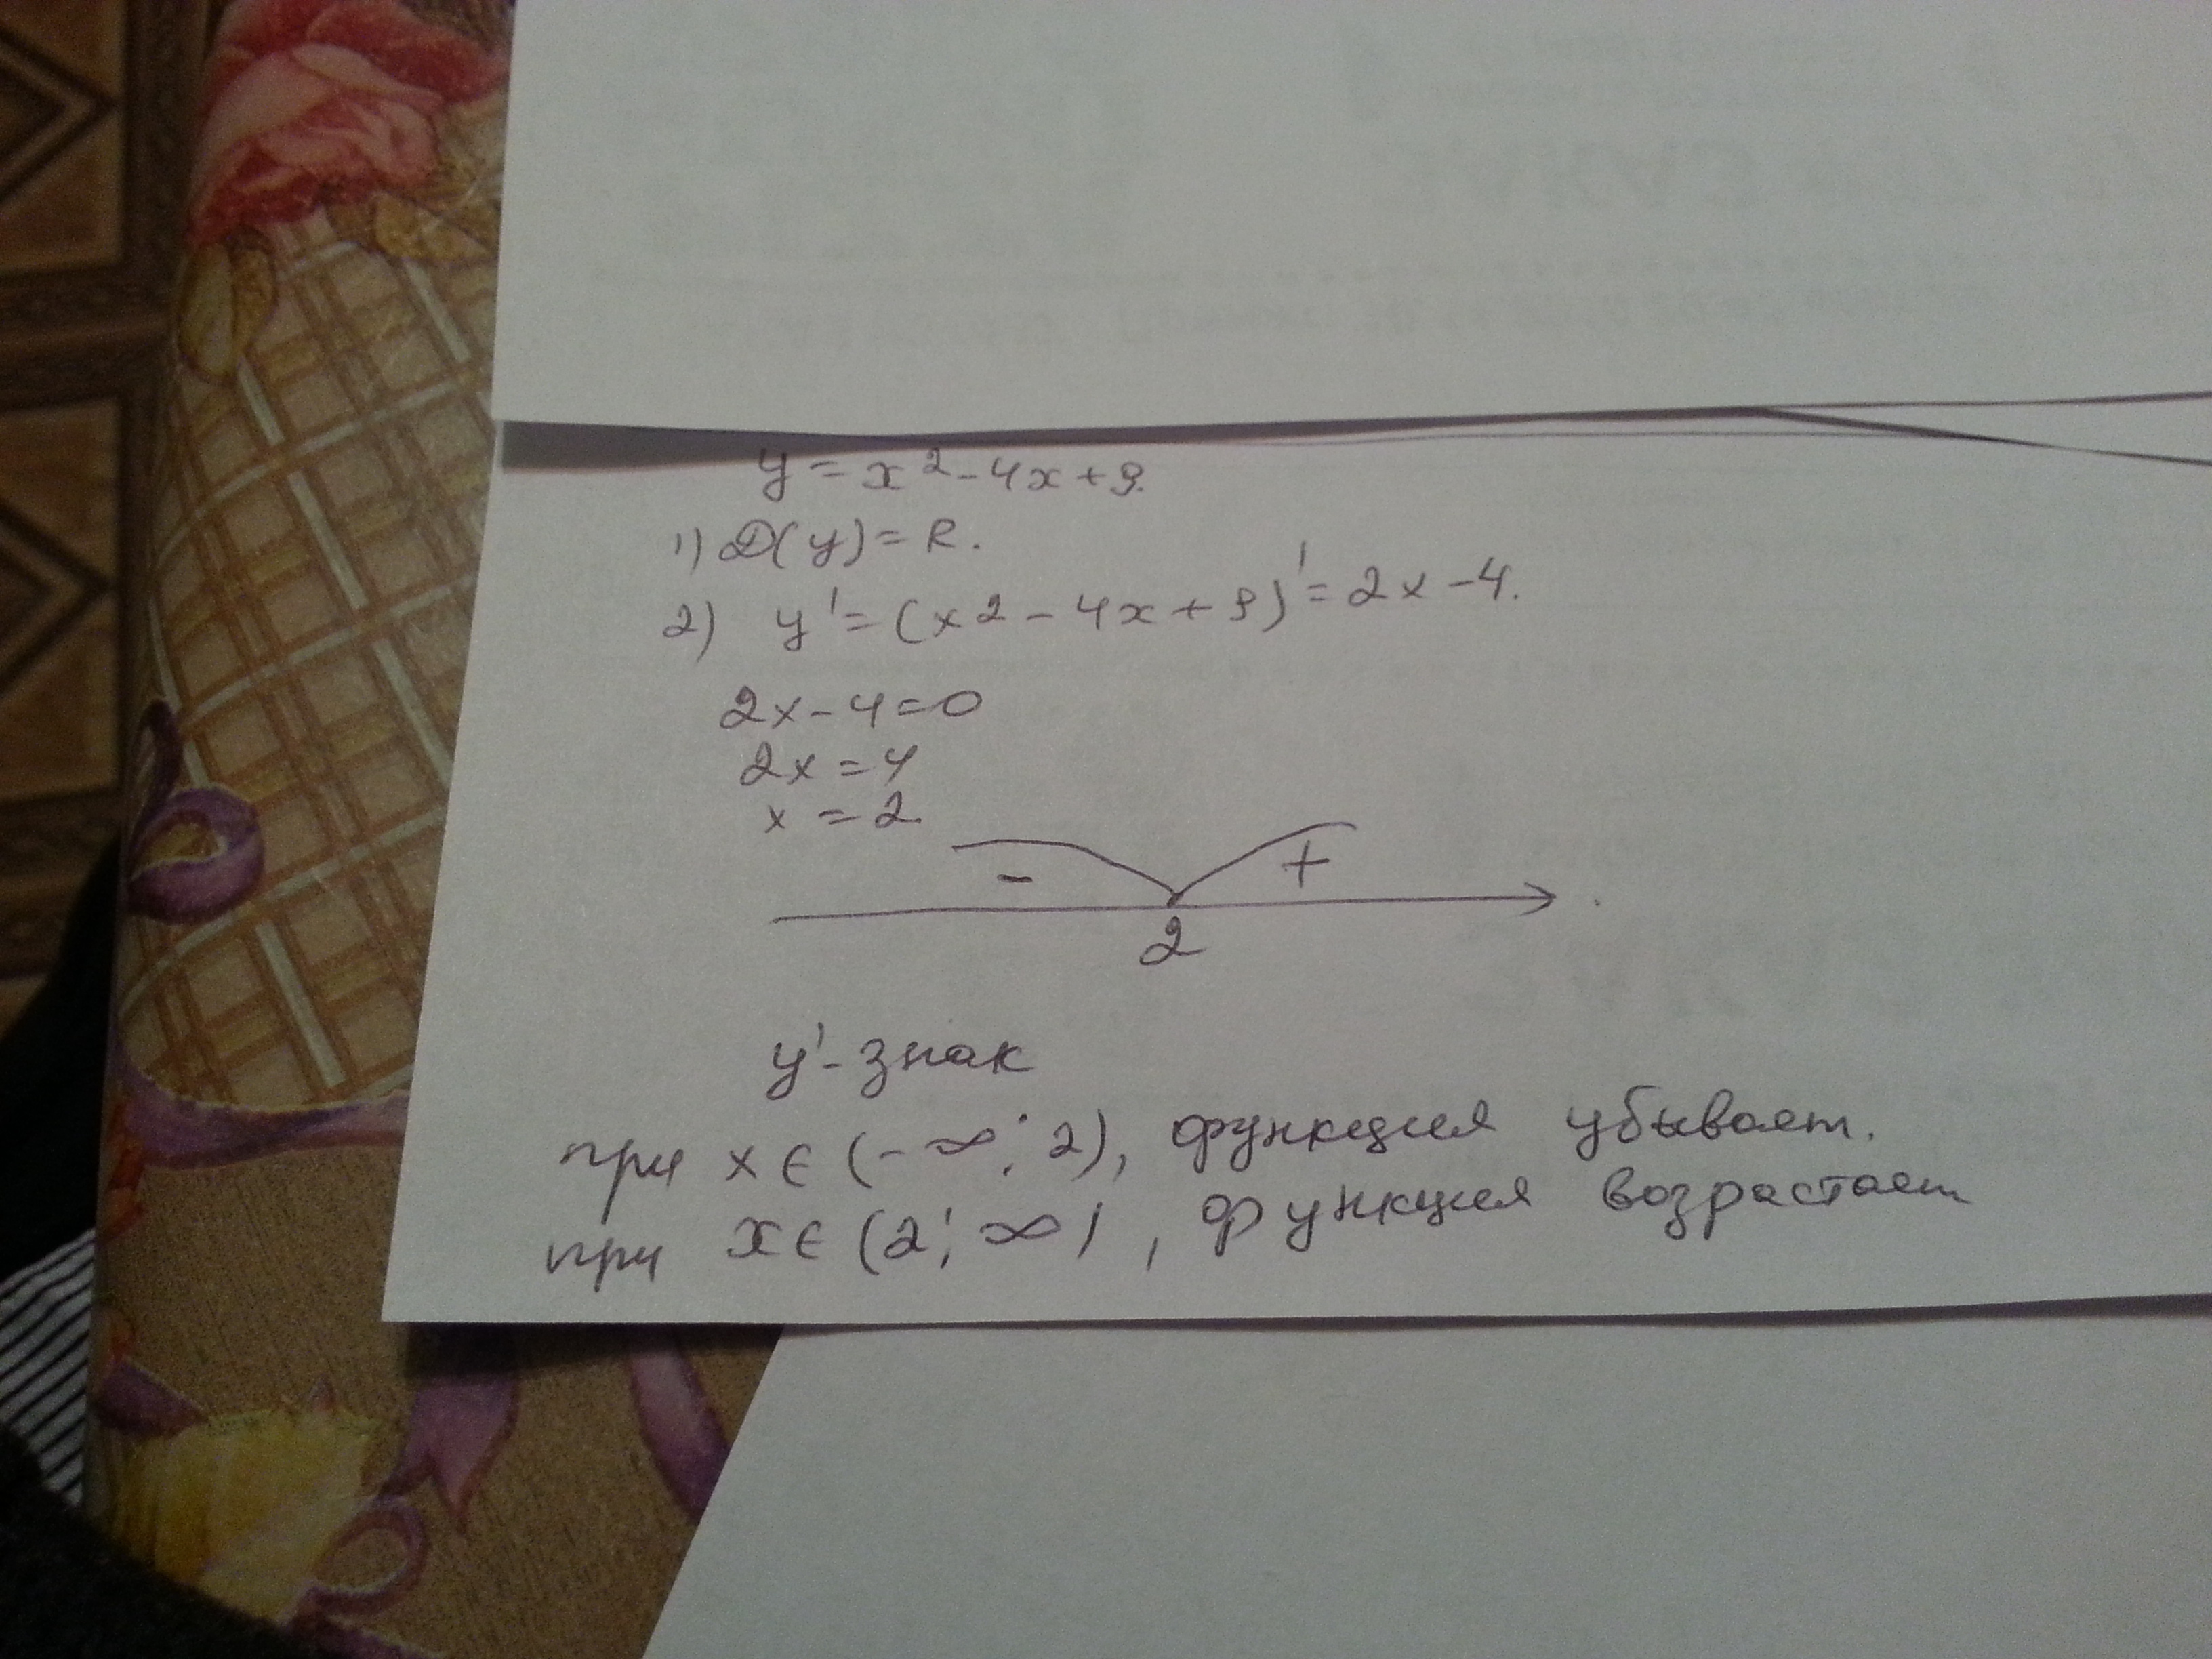 y = x² - 4x + 9.
1) D(y) = R.
2) y' = (x2 - 4x + 9)' = 2x - 4.
2x - 4 = 0
2x = 4
x = 2
- +
2
y' - знак
при x ∈ (-∞; 2), функция убывает.
при x ∈ (2; ∞), функция возрастает